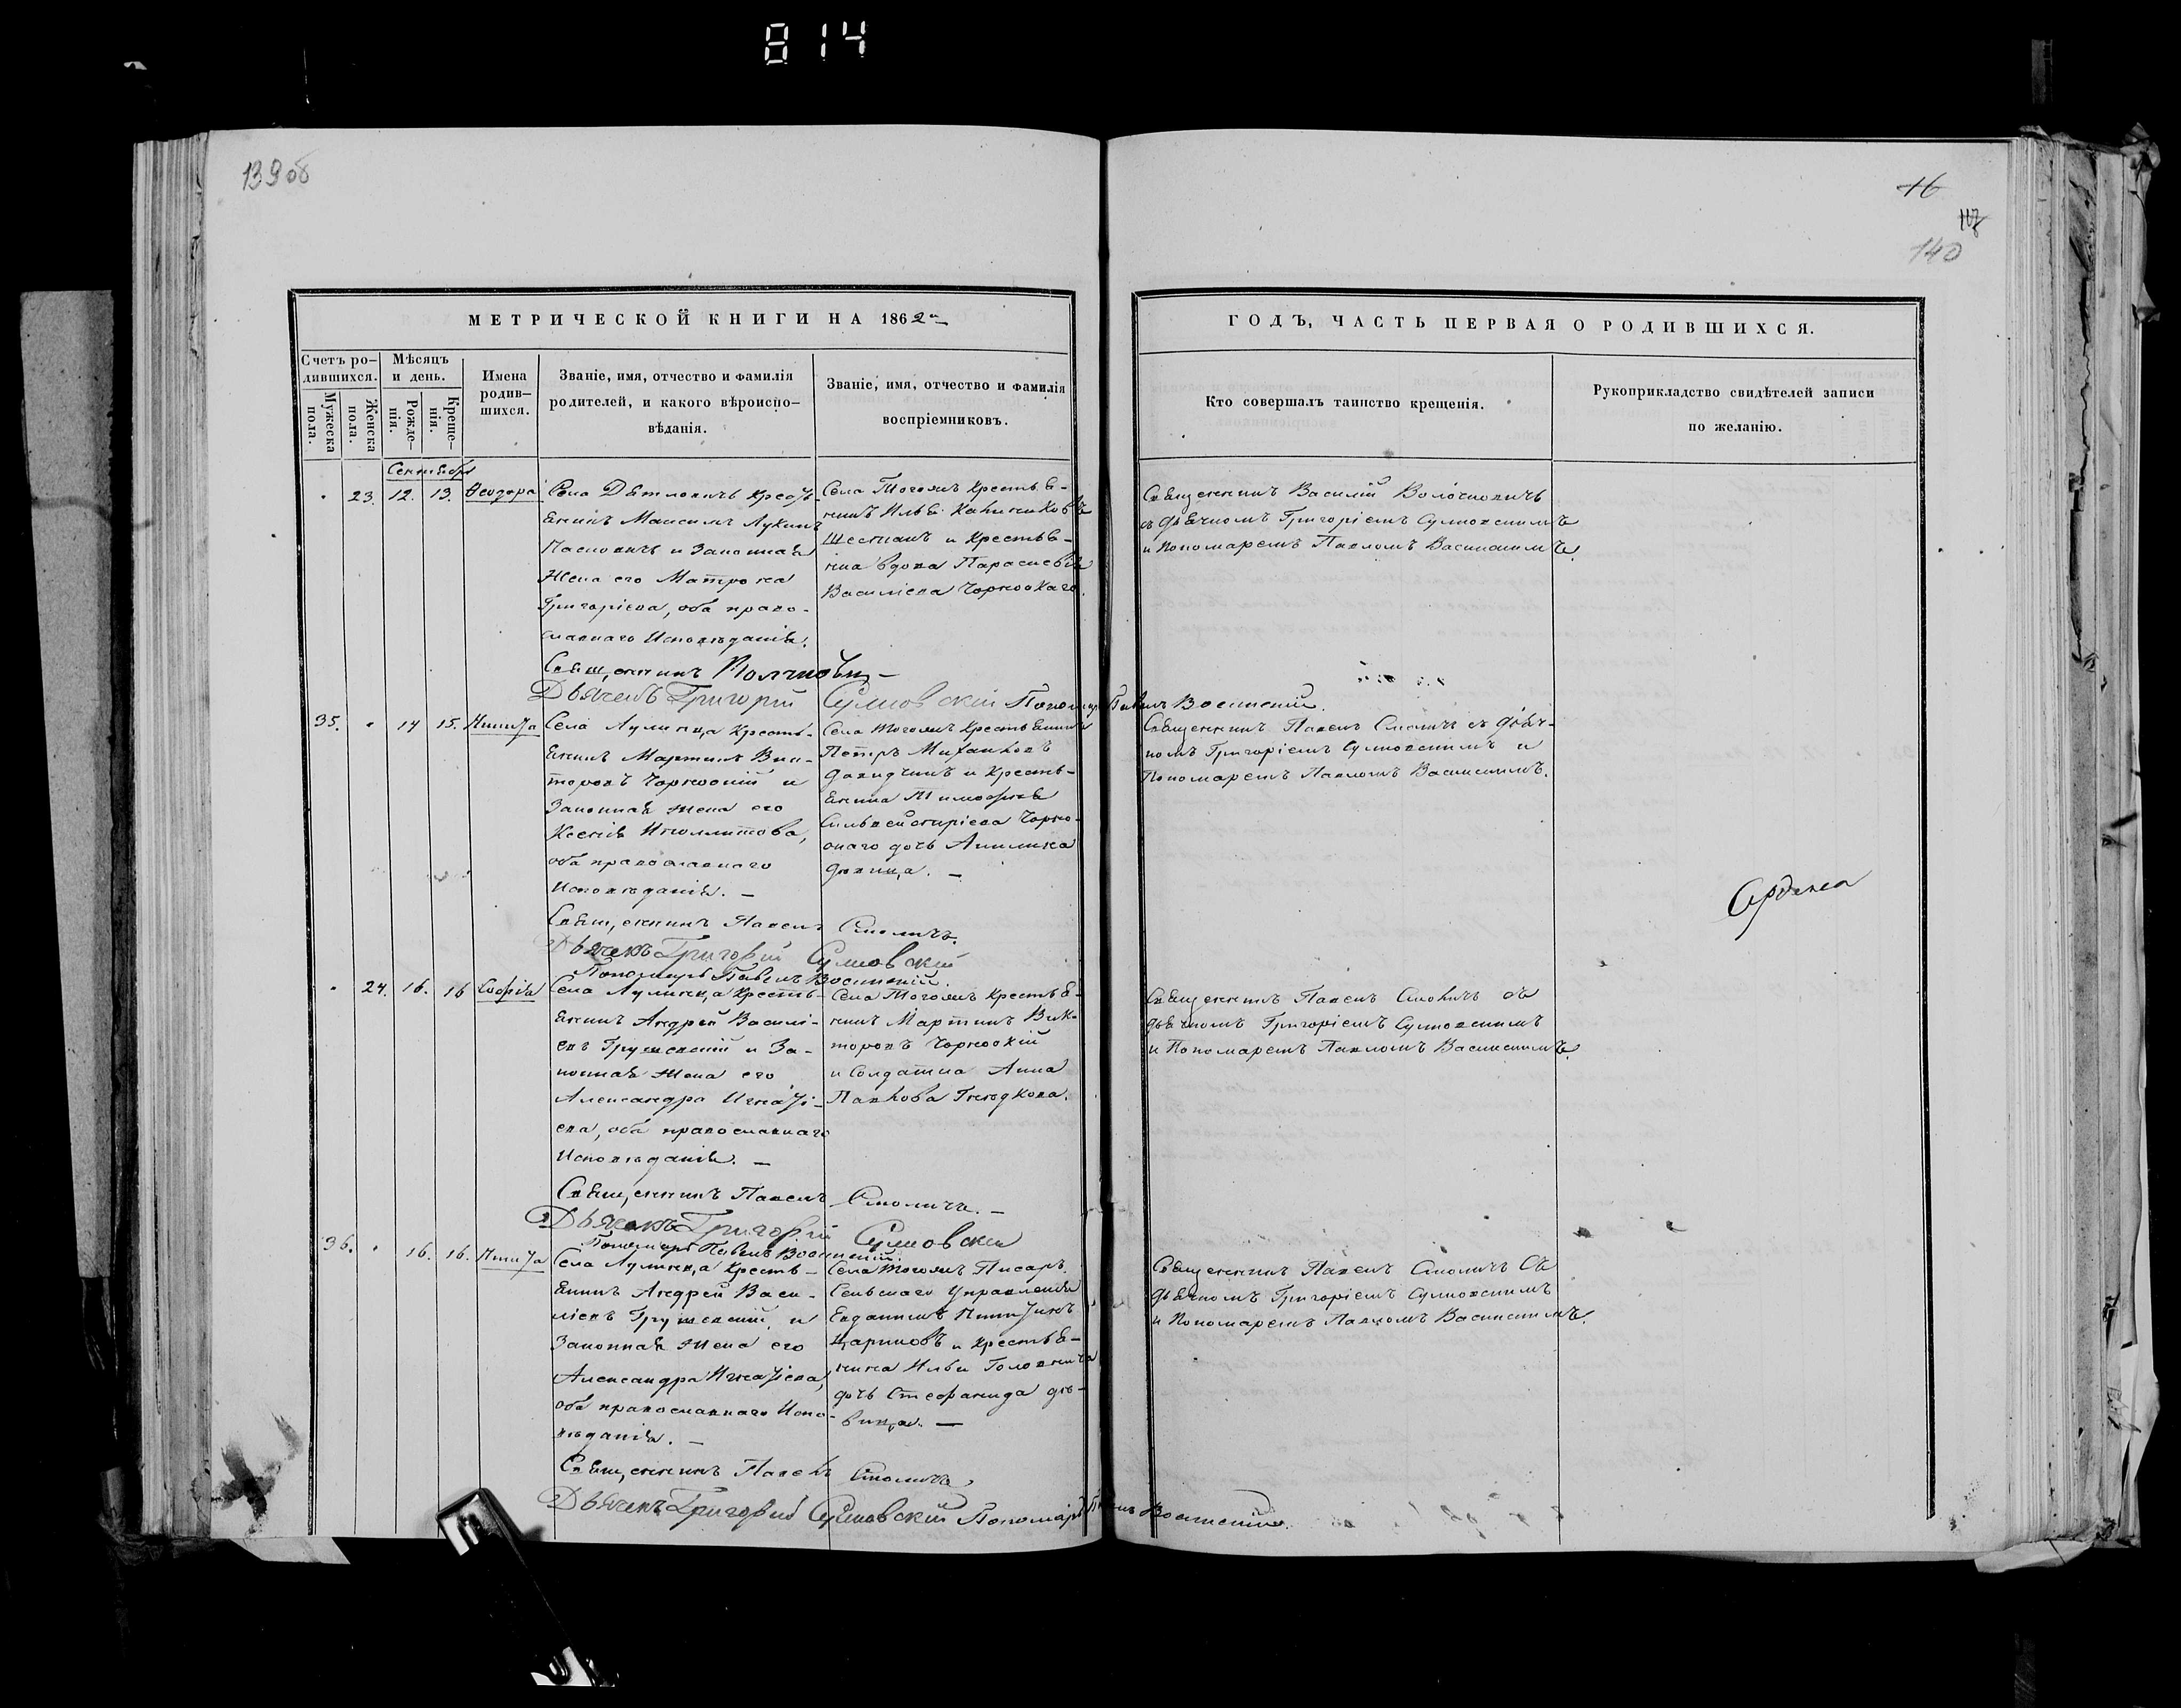 814
139 об
16
140
МЕТРИЧЕСКОЙ КНИГИ НА 1862й
Счетъ ро-
дившихся.
Мужеска
пола.
Женска
пола.
Мѣсяцъ
и день.
Рожде-
нія.
Креще-
нія.
Имена
родив-
шихся.
Званіе, имя, отчество и фамилія
родителей, и какого вѣроиспо-
вѣданія.
Званіе, имя, отчество и фамилія
воспріемниковъ.
ГОДЪ, ЧАСТЬ ПЕРВАЯ О РОДИВШИХСЯ.
Кто совершалъ таинство крещенія.
Рукоприкладство свидѣтелей записи
по желанію.
Сентябрь
23. 12. 13. Ѳеодора
Села Дѣтловичъ Кресть-
янинъ Максимъ Лукинъ
и Законная
Жена его Матрона
Григоріева, оба право-
славнаго Исповѣданія.
Села Тогожъ Крестья-
нинъ Илья
Шестакъ и Крестья-
нка вдова Параскевія
Василіева Чорноокаго.
Священникъ Василій
съ дьячкомъ Григоріемъ Сулковскимъ
и Пономаремъ Павломъ
Священникъ
Дьячекъ Григорій Сулковскій Пономарь Павелъ
35. 14 15. Никита
Села Лулинца Кресть-
янинъ Мартинъ Вик-
торовъ Чорноокій и
Законная жена его
Ксенія Ипполитова,
оба православнаго
Исповѣданія. —
Села Тогожъ Крестьянинъ
Петръ Михайловъ
Давидчикъ и Кресть-
янина Тимофея
Сильвестріева Чорно-
окаго дочь Акилина
дѣвица. —
Священникъ Павелъ Смоличъ съ дьяч-
комъ Григоріемъ Сулковскимъ и
Пономаремъ Павломъ
Священникъ Павелъ Смоличъ.
Дьячекъ Григорій Сулковскій
Пономарь Павелъ
24. 16. 16 Софія
Села Лулинца Кресть-
янинъ Андрей Василі-
евъ Грушевскій и За-
конная жена его
Александра Игнаті-
ева, оба православнаго
Исповѣданія. —
Села Тогожъ Крестья-
нинъ Мартинъ Вик-
торовъ Чорноокій
и Солдатка Анна
Павлова
Священникъ Павелъ Смоличъ съ
дьячкомъ Григоріемъ Сулковскимъ
и Пономаремъ Павломъ
Священникъ Павелъ Смоличъ. —
Дьячекъ Григорій Сулковскій
Пономарь Павелъ
36. 16. 16. Никита
Села Лулинца Кресть-
янинъ Андрей Васи-
ліевъ Грушевскій, и
Законная жена его
Александра Игнатіева,
оба православнаго Испо-
вѣданія. —
Села Тогожъ Писарь
Сельскаго Управленія
Евдокимъ Никитинъ
и Крестья-
нина Ильи
дочь Стефанида дѣ-
вица. —
Священникъ Павелъ Смоличъ Съ
дьячкомъ Григоріемъ Сулковскимъ
и Пономаремъ Павломъ
Священникъ Павелъ Смоличъ.
Дьячекъ Григорій Сулковскій Пономарь Павелъ